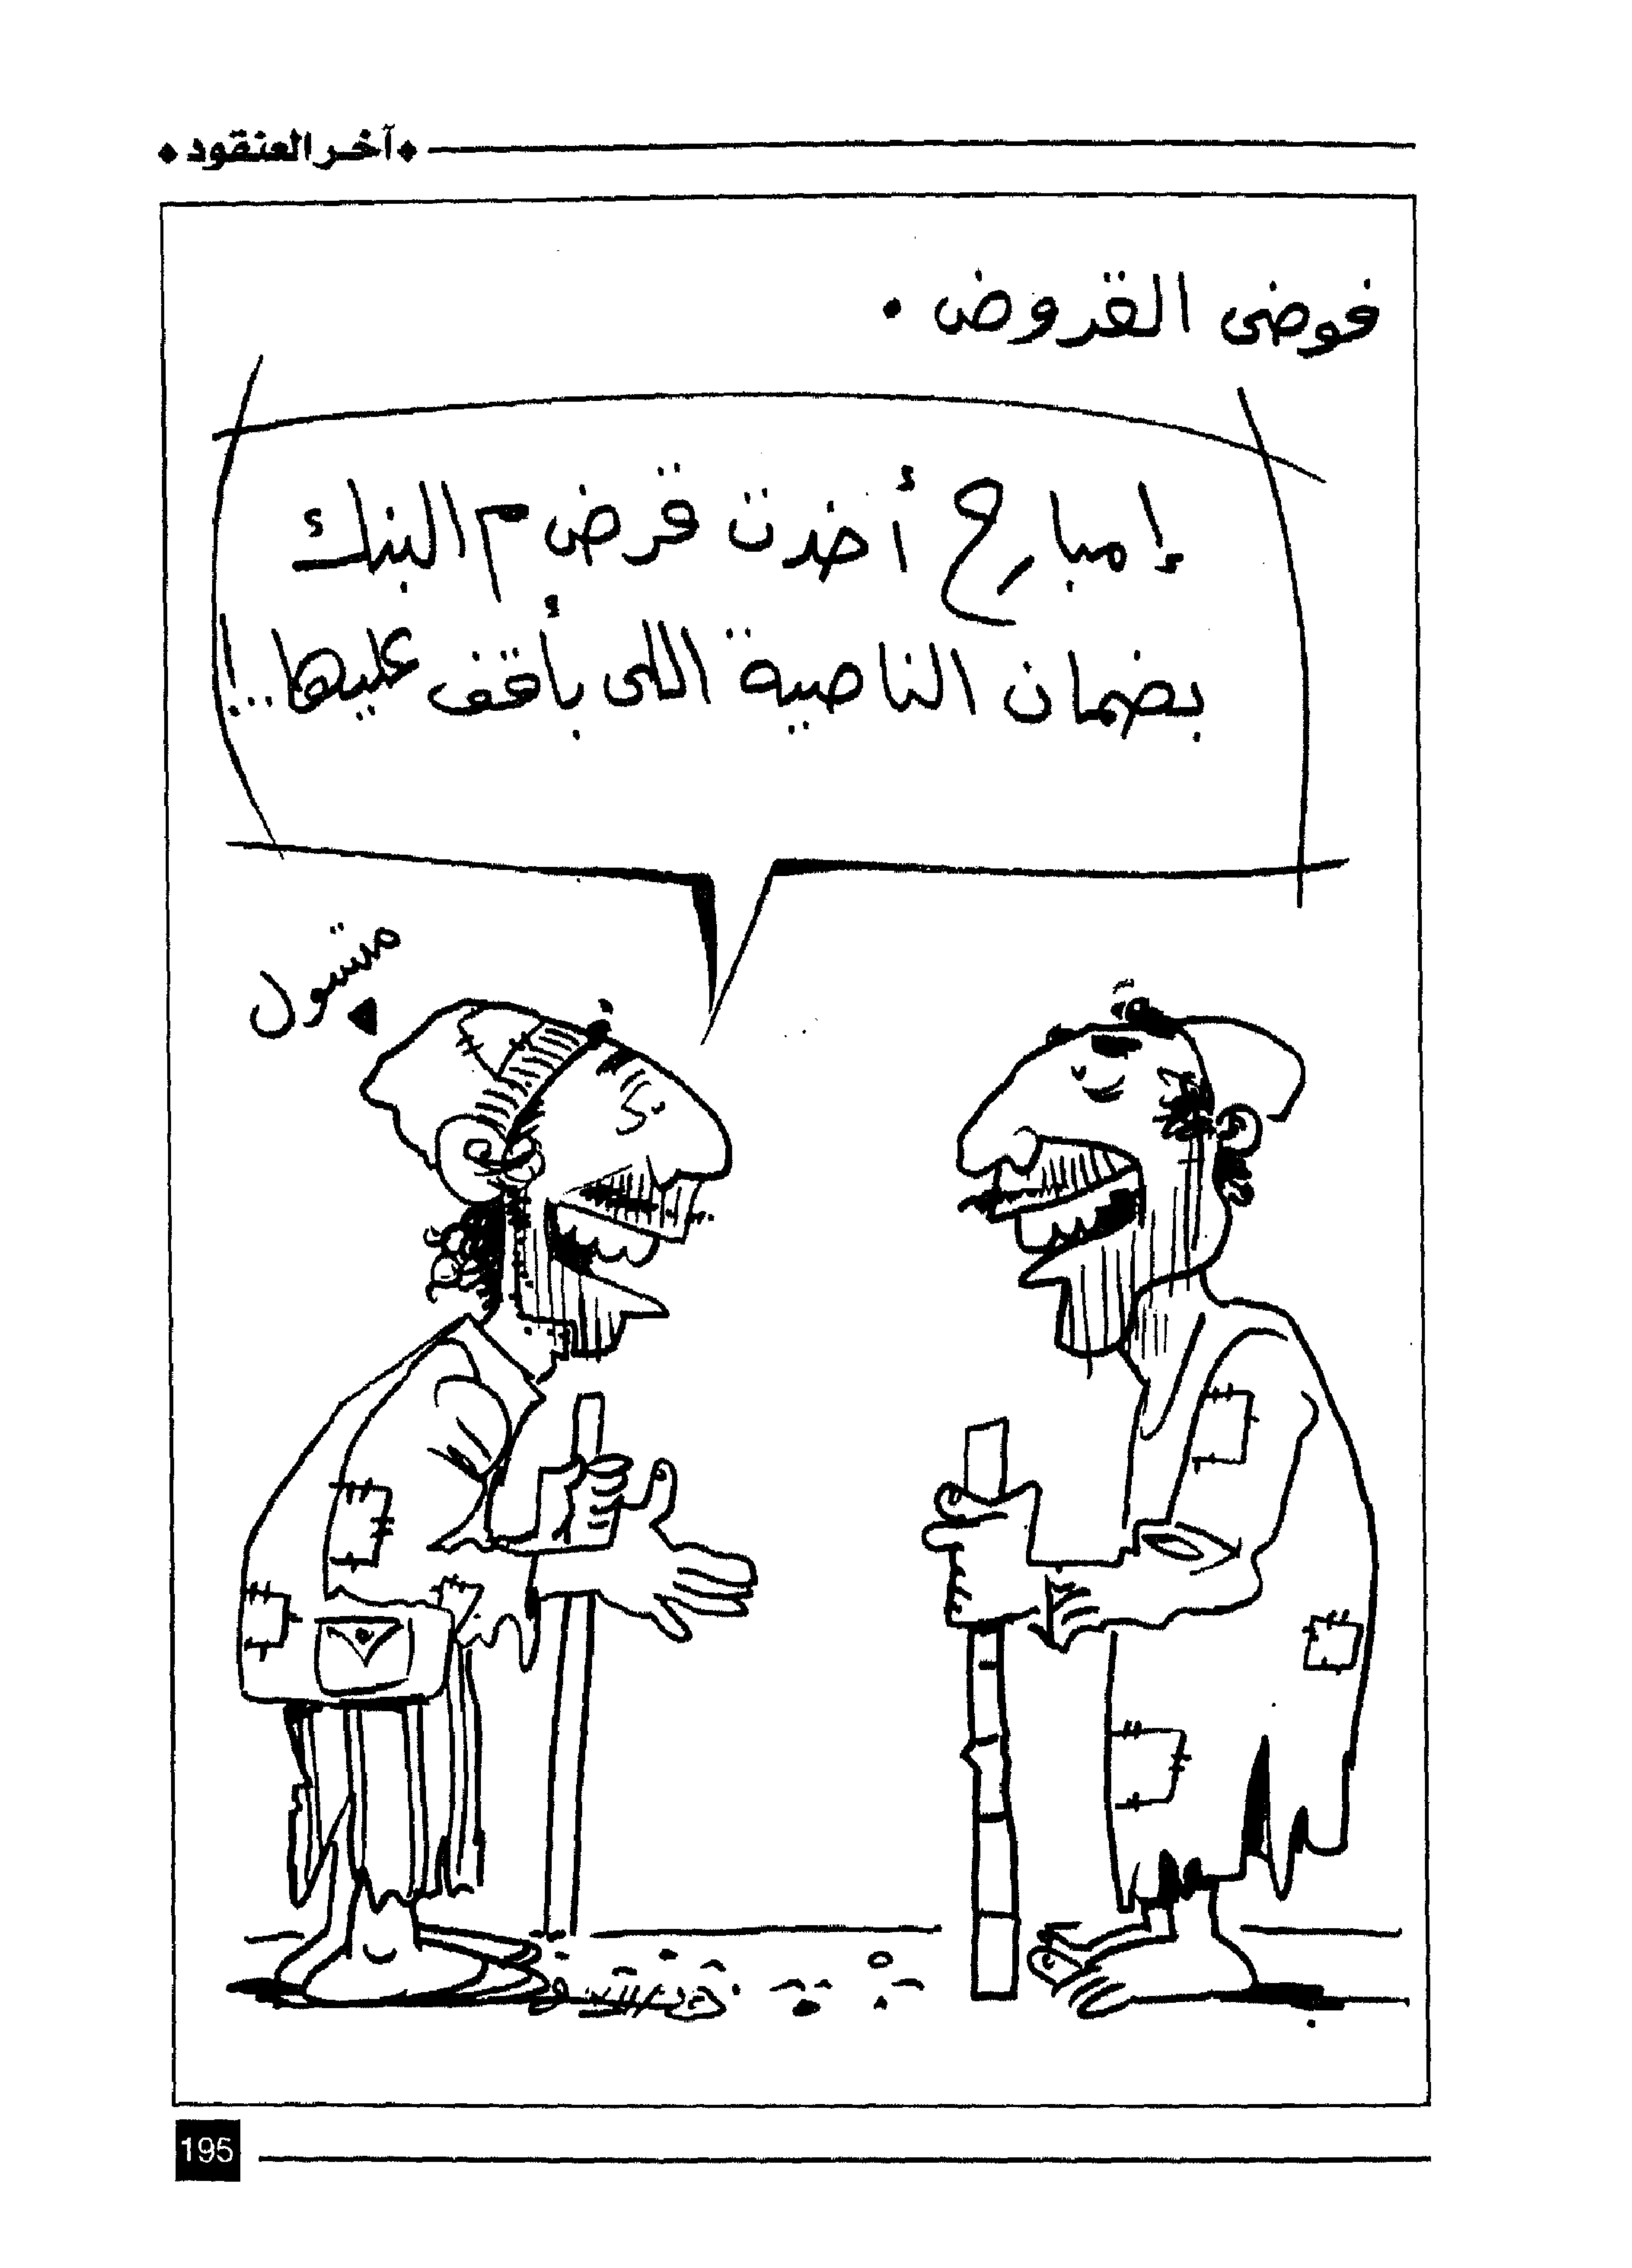 آخر العنقود
فوضى القروض .
إمبارح أخدت قرض م البنك
بضمان الناصية اللى بأقف عليها..!
متسول
195